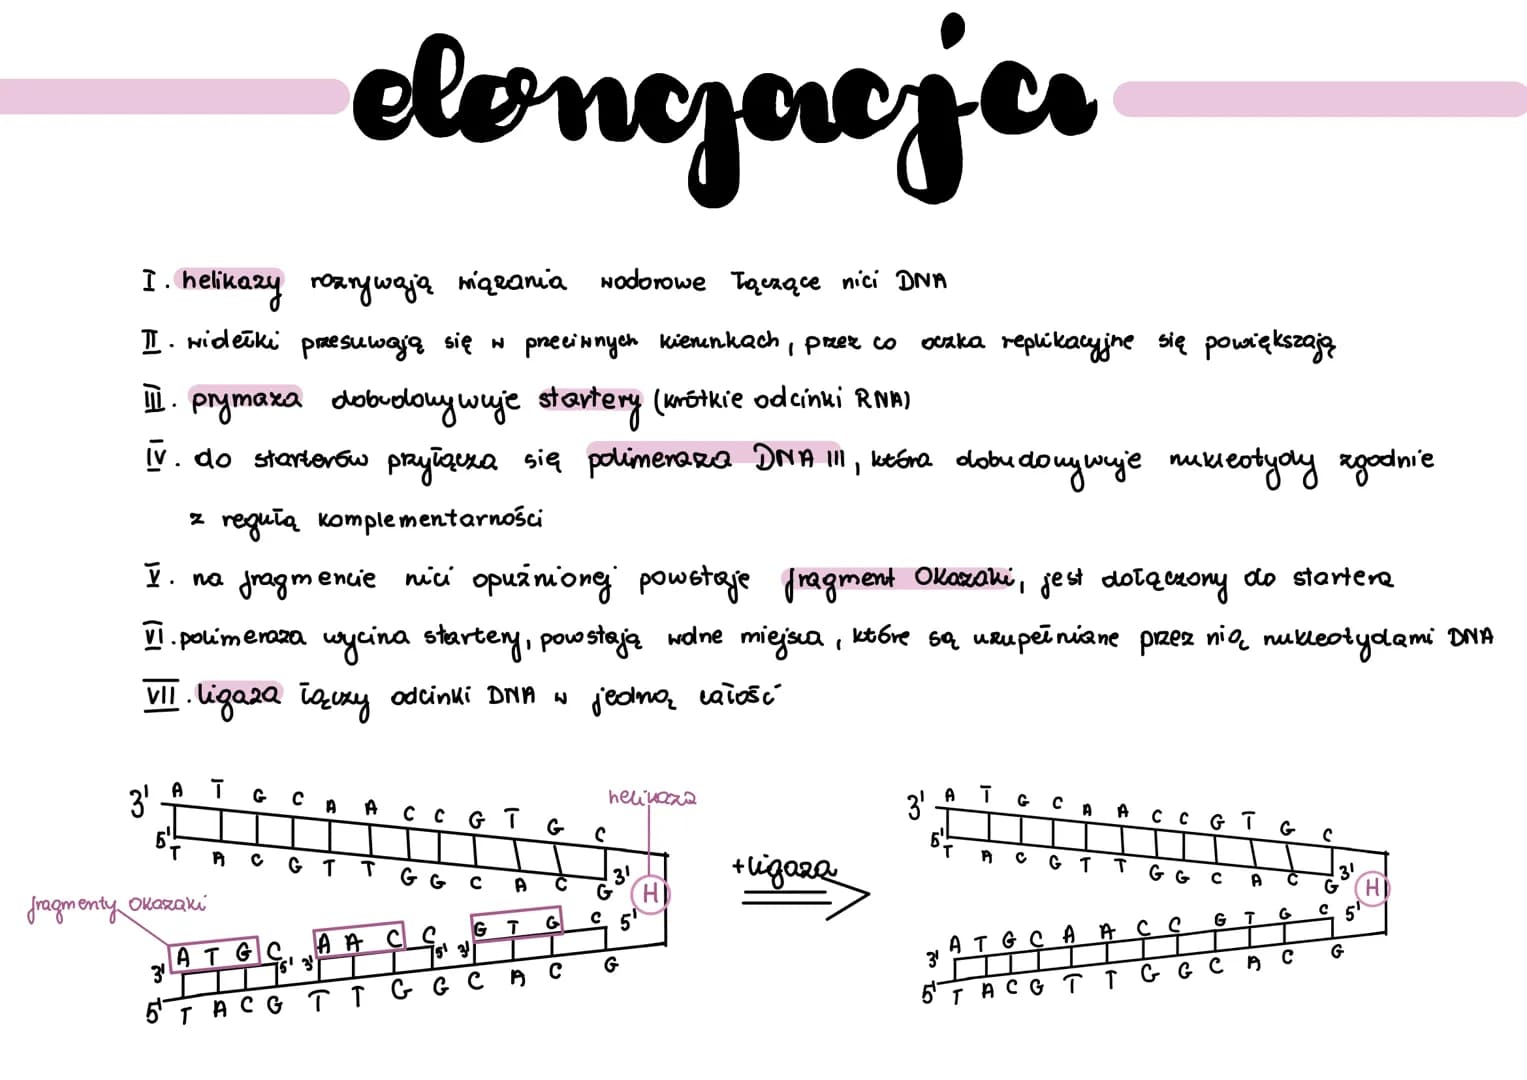 elongacja
I. helikazy rozrywają wiązania wodorowe łączące nici DNA
II. widełki przesuwają się w przeciwnych kierunkach, przez co oczka replikacyjne się powiększają
III. prymaza dobudowywuje startery (krótkie odcinki RNA)
IV. do starterów przyłącza się polimeraza DNA III, która dobudowywuje nukleotydy zgodnie
z regułą komplementarności
V. na fragmencie nici opóźnionej powstaje fragment Okazaki, jest dołączony do startera
VI. polimeraza wycina startery, powstają wolne miejsca, które są uzupełniane przez nią nukleotydami DNA
VII. ligaza łączy odcinki DNA w jedną całość
3' A T G C A A C C G T G C
helikaza
5' T A C G T T G G C A C G 3'
H
fragmenty Okazaki
3' A T G C 5' 3' A A C C 5' 3' G T G C 5'
5' T A C G T T G G C A C G
+ligaza
3' A T G C A A C C G T G C
5' T A C G T T G G C A C G 3'
H
3' A T G C A A C C G T G C 5'
5' T A C G T T G G C A C G